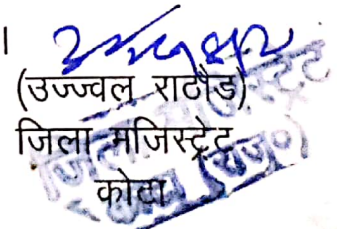 ।
(उज्ज्वल राठौड़)
जिला मजिस्ट्रेट
कोटा